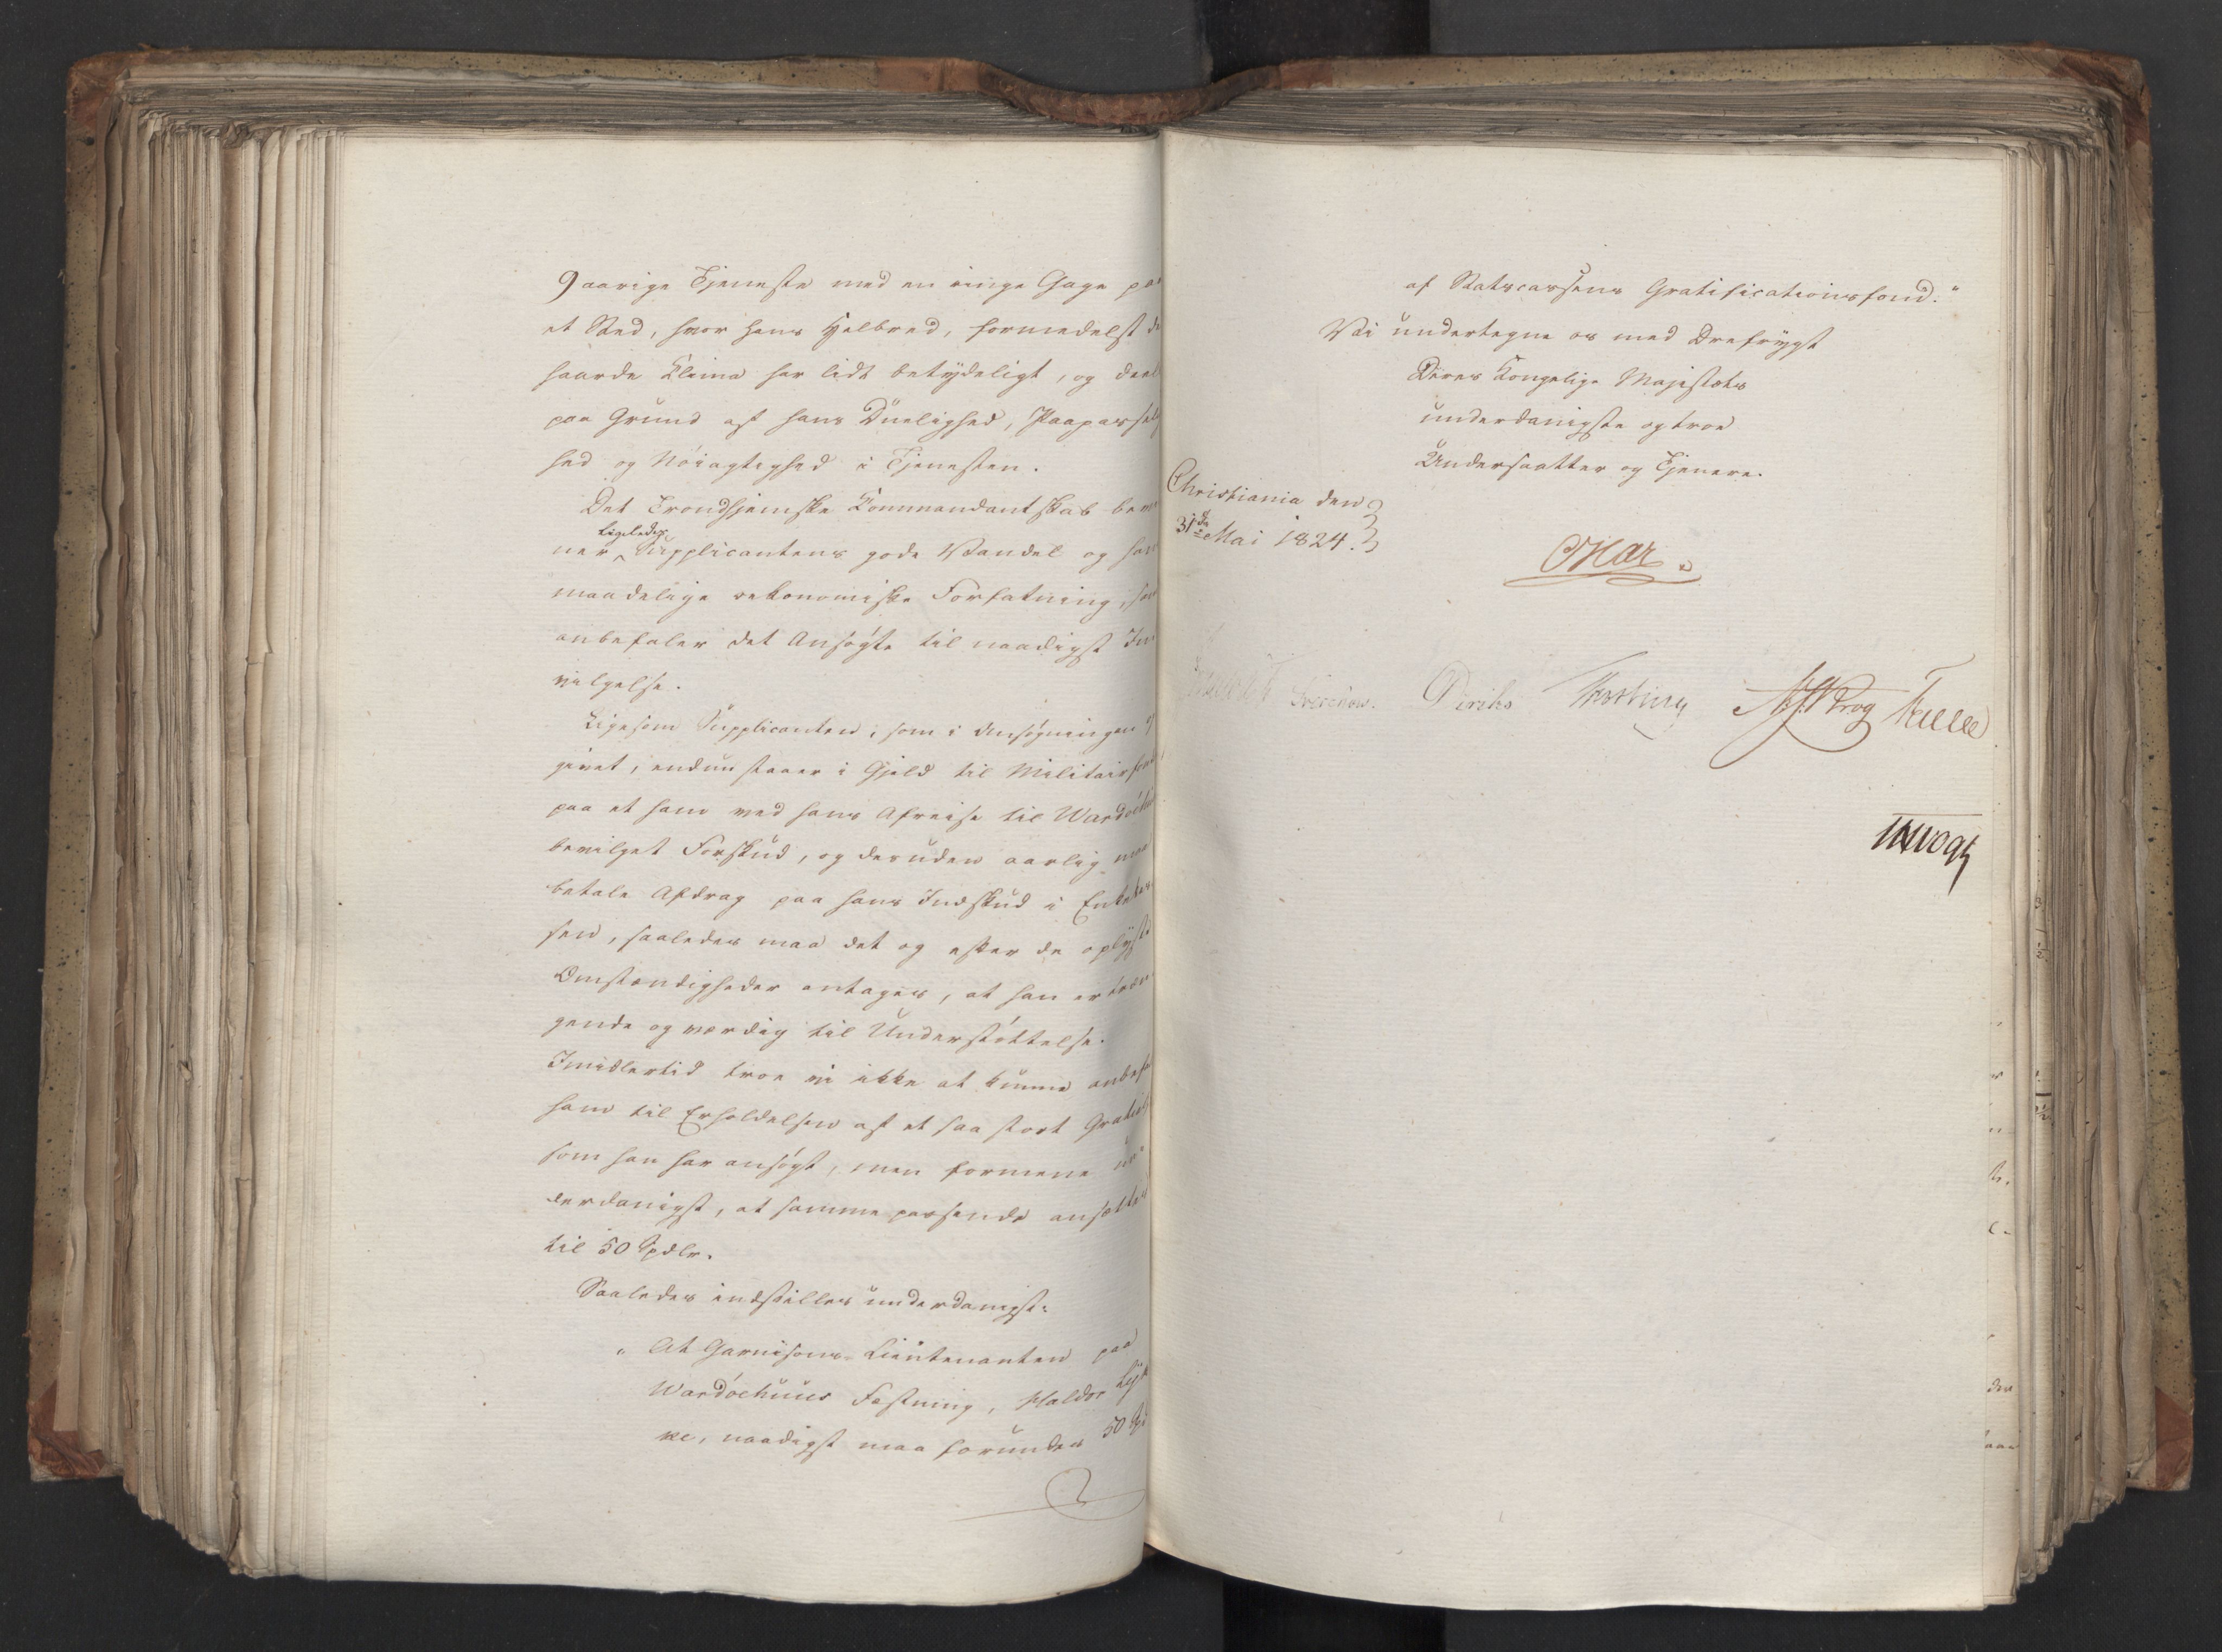 9 aarige Tjeneste med en ringe Gage paa
et Sted, hvor hans Helbred, formedelst de
haarde Clima har lidt betydeligt, og deel
paa Grund af hans Duelighed, Paapassel
hed og Nøiagtighed i Tjenesten.
Det Trondhjemske Commandantskab bevid
ligeledes
ner Supplicantens gode Vandel og hans
maadelige oekonomiske Forfatning, samt
anbefaler det Ansøgte til naadigst Ind
vilgelse.
Ligesom Supplicanten, som i Ansøgningen op
givet, endnu staaer i Gjeld til Militairfond
paa et ham ved hans Afreise til Wardøehuus
bevilget Forskud, og desuden aarlig maa
betale Afdrag paa hans Indskud i Enkekas
sen, saaledes maa det og efter de oplyste
Omstændigheder antages, at han er træn
gende og værdig til Understøttelse.
Imidlertid troe vi ikke at kunne anbefa
ham til Erholdelsen af et saa stort Gratial
som han har ansøgt, men formene un
derdanigst, at samme passende ansættes
til 50 Spdlr.
Saaledes indstilles underdanigst:
"At Garnisons-Lieutenanten paa
Wardøehuus Fæstning, Haldor Lyk
ke, naadigst maa forundes 50 Spd
af Statscassens Gratificationsfond."
Vi undertegne os med Ærefrygt
Deres Kongelige Majestæts
underdanigste og troe
Undersaatter og Tjenere.
Christiania den
31te Mai 1824.
Diriks
Krog
JHVogt